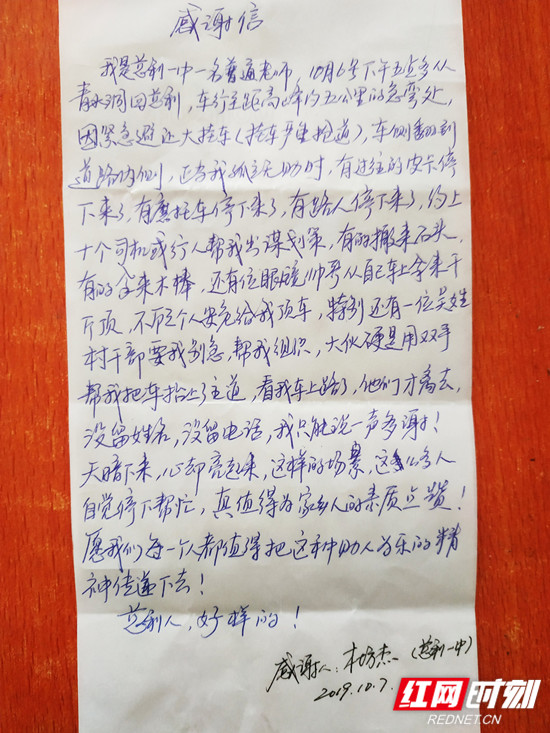 感谢信
我是慈利一中一名普通老师，10月6号下午五点多从
青水洞回慈利，车行至距高峰约五公里的急弯处，
因紧急避让大挂车（挂车严重抢道），车侧翻到
道路内侧，正当我孤立无助时，有过往的皮卡停
下来了，有摩托车停下来了，有路人停下来了，约上
十个司机或行人帮我出谋划策，有的搬来石头，
有的拿来木棒，还有位眼镜帅哥从自己车上拿来千
斤顶，不顾个人安危给我顶车，特别还有一位吴姓
村干部要我别急，帮我组织，大伙硬是用双手
帮我把车抬上了主道，看我车上路了，他们才离去，
没留姓名，没留电话，我只能说一声多谢！
天暗下来，心却亮起来，这样的场景，这么多人
自觉停下帮忙，真值得为家乡人的素质点赞！
愿我们每一个人都值得把这种助人为乐的精
神传递下去！
慈利人，好样的！
感谢人：杰（慈利一中）
2019.10.7.
红网时刻
REDNET.CN